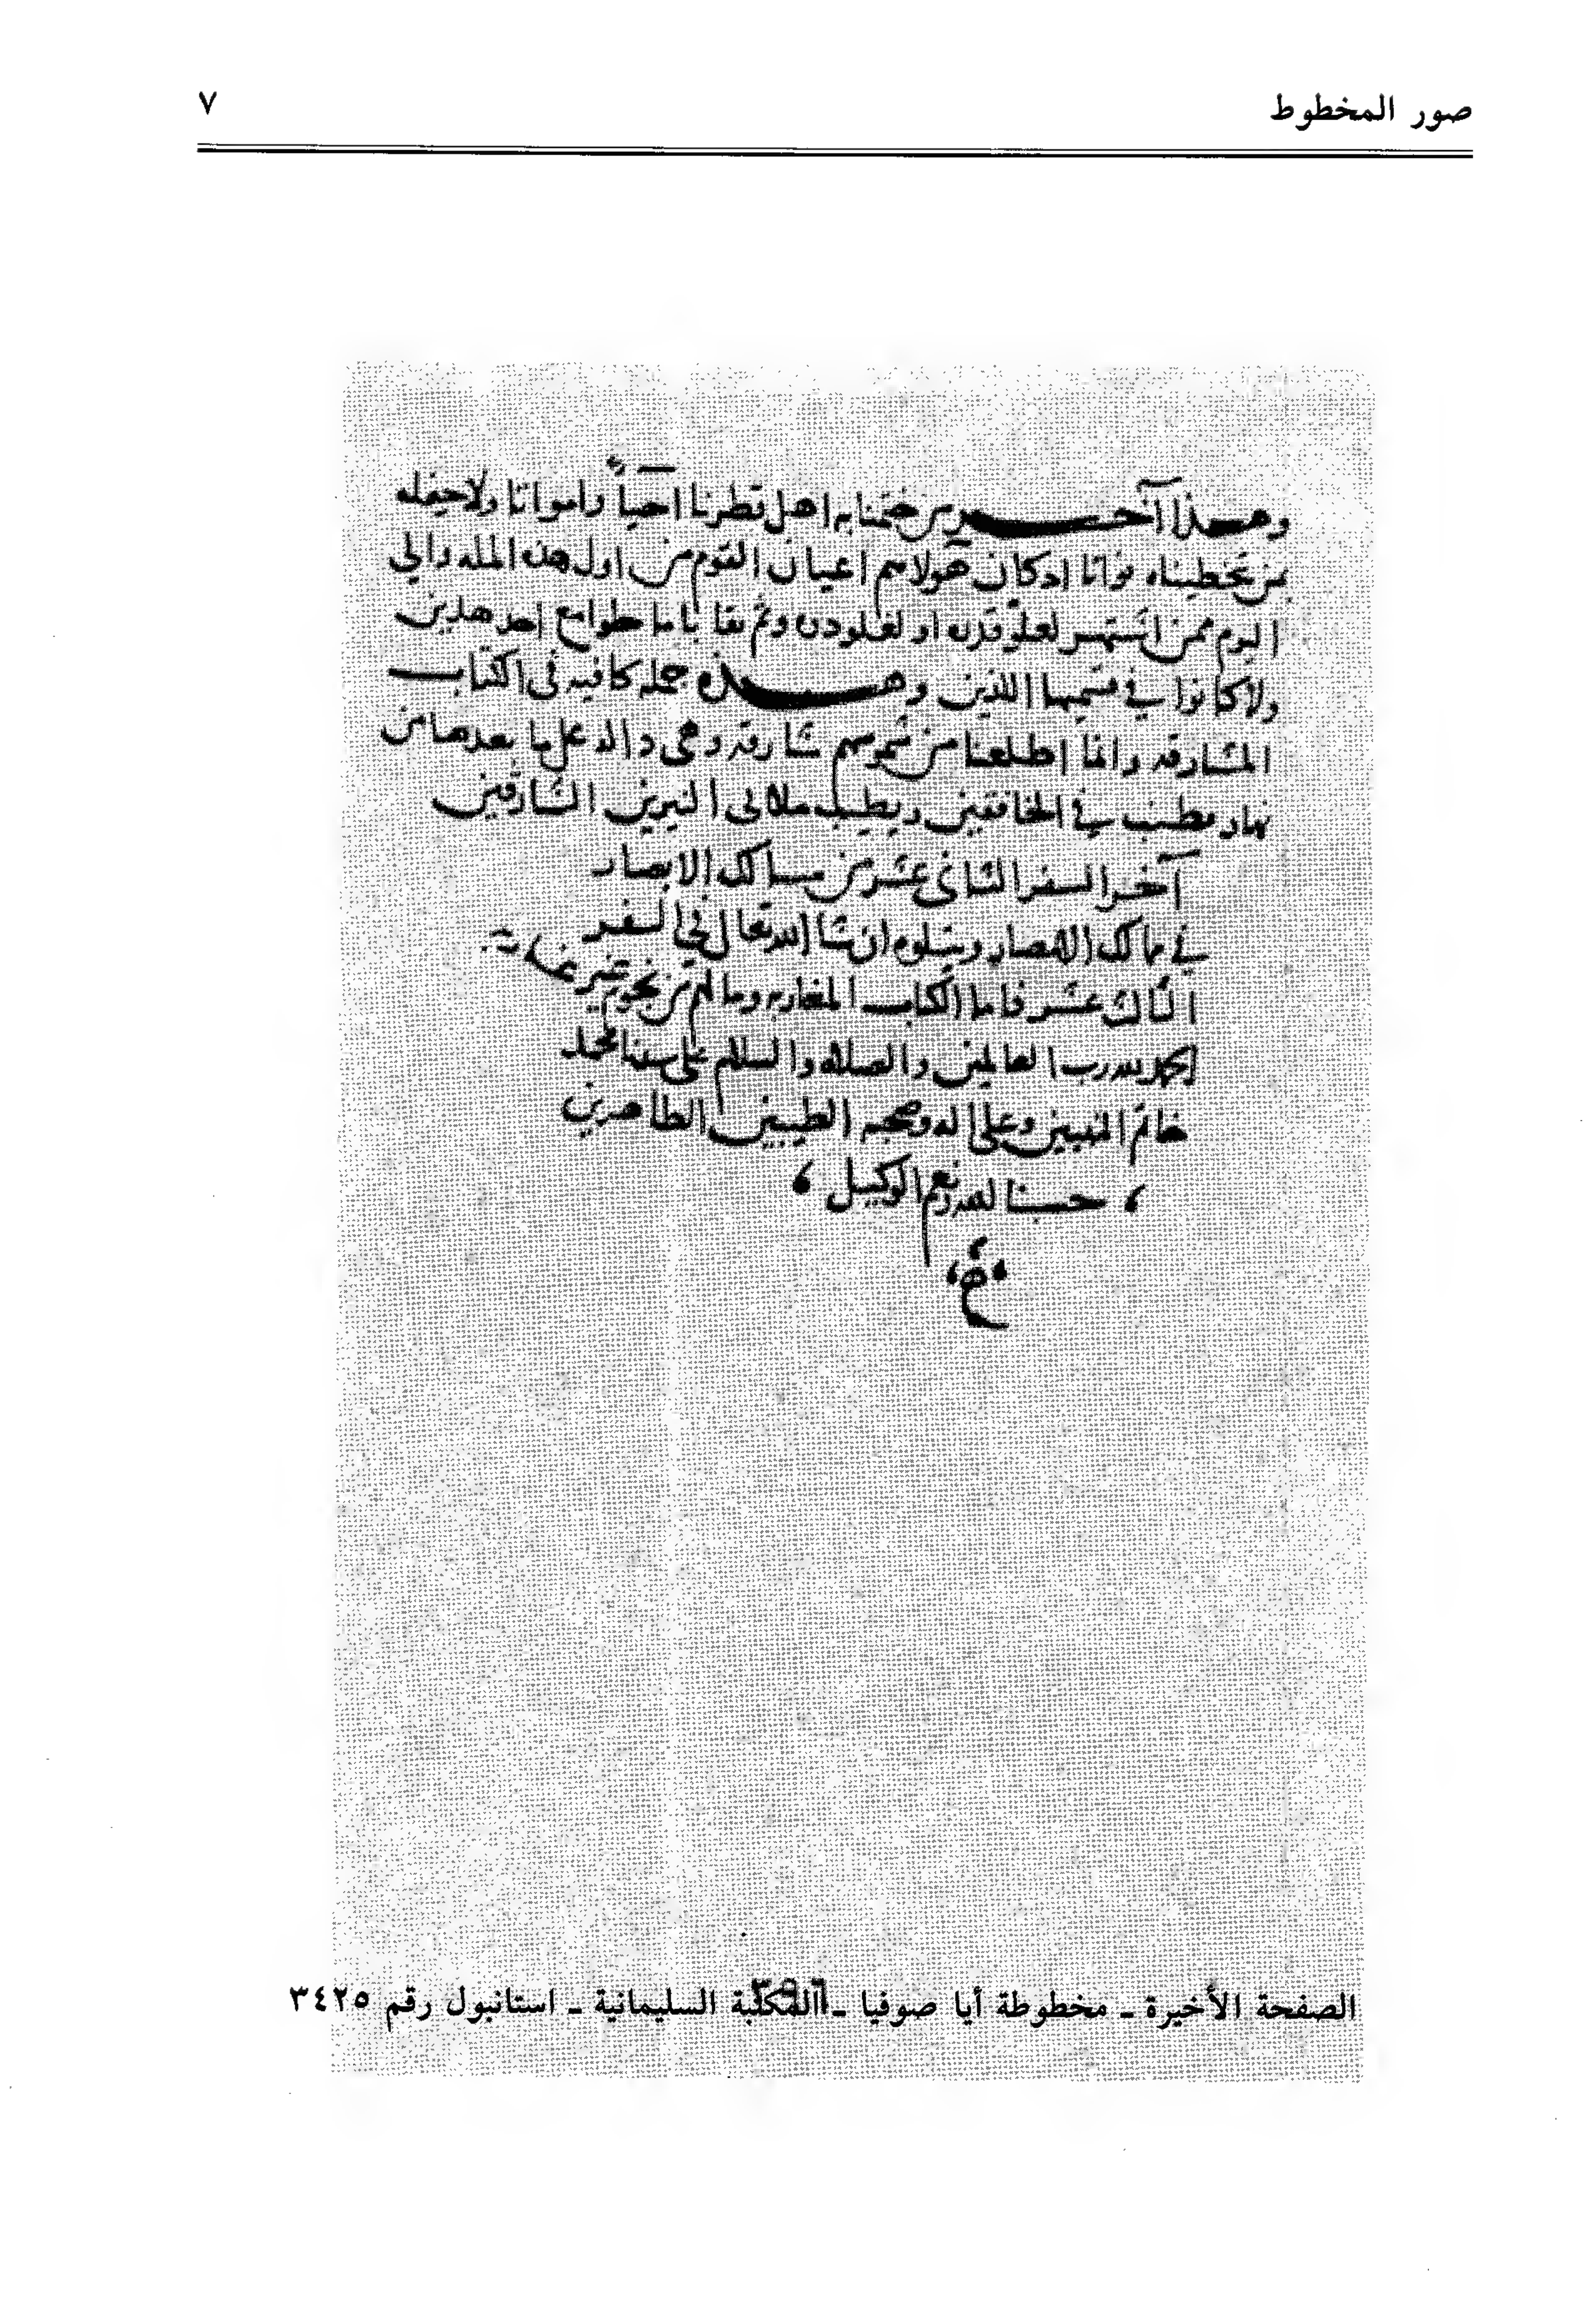 صور المخطوط
٧
وهذا آخر من ختمنا به اهل قطرنا احياً وامواتا ولا حفله
بمن تخطيناه فواتا إذ كان هولا هم اعيان القوم من اول هذه المله والى
اليوم ممن اشتهر لعلو قدره او لغلو دره وثم بقايا ما طوامع احد هذين
ولا كانوا في قسميها اللذين وهذه جمله كافيه فى الكتاب
المشارقه وانما اطلعنا من شموسهم شارقه وهى داله على ما بعدها من
نهار مطنب في الخافقين ويطيب ملالى النيرين الشارقين
آخر السفر الثانى عشر من مسالك الابصار
في ممالك الامصار ويتلوه ان شا الله تعالى في السفر
الثالث عشر فاما الكتاب المغاربه وما لهم من نجوم غير غاربه
الحمد لله رب العالمين والصلاه والسلام على سيدنا محمد
خاتم النبيين وعلى اله وصحبه الطيبين الطاهرين
حسبنا الله ونعم الوكيل
الصفحة الأخيرة ـ مخطوطة أيا صوفيا ـ المكتبة السليمانية ـ استانبول رقم ٣٤٢٥